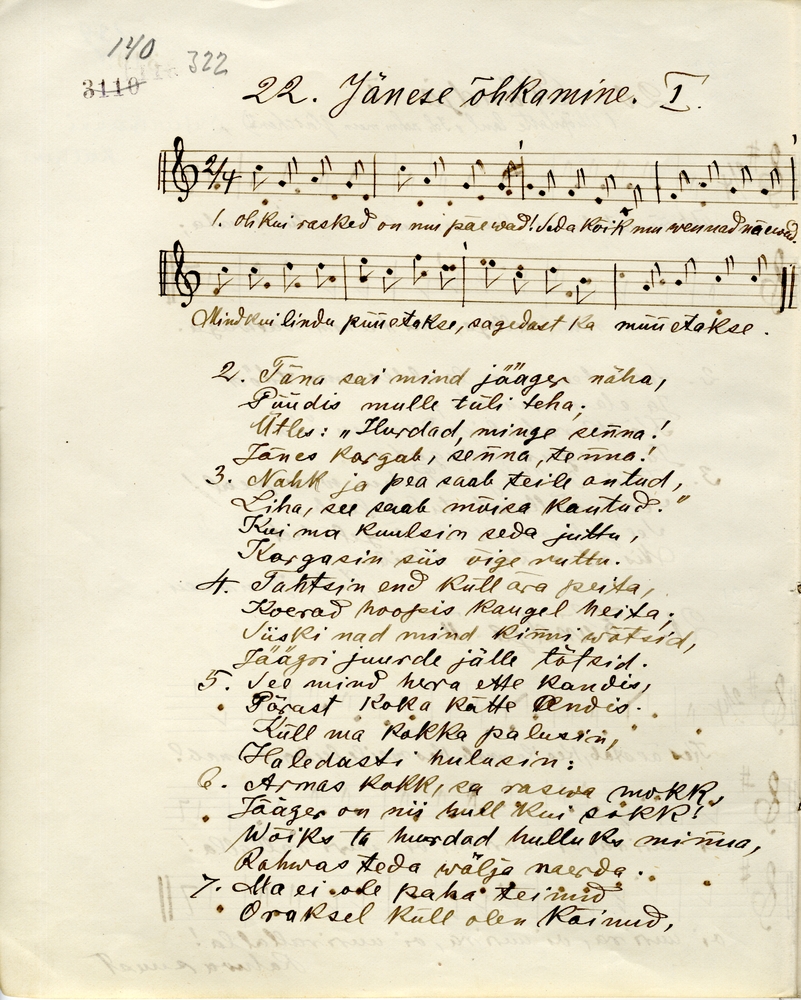 140 322
3110
22. Jänese õhkamine. I.
2/4
1. oh kui rasked on mu päewad! Seda kõik mu wennad näewad.
Mind kui lindu püütakse, sagedast ka müüetakse.
2. Täna sai mind jääger näha,
Püüdis mulle tüli teha;
Ütles: „Hurdad, minge senna!
Jänes kargab, senna, tenna!
3. Nahk ja pea saab teile antud,
Liha, see saab mõisa kantud."
Kui ma kuulsin seda juttu,
Kargasin siis õige ruttu.
4. Tahtsin end küll ära peita,
Koerad hoopis kaugel heita;
Siiski nad mind kinni wõtsid,
Jäägri juurde jälle tõtsid.
5. See mind herra ette kandis,
Pärast koka kätte andis.
Küll ma kokka palusin,
Haledasti hulusin:
6. Armas kokk, sa raswa mokk,
Jääger on nii hull kui sokk!
Wõiks ta hurdad hulluks minna,
Rahwas teda wälja naerda.
7. Ma ei ole paha teinud
Oraksel küll olen käinud,